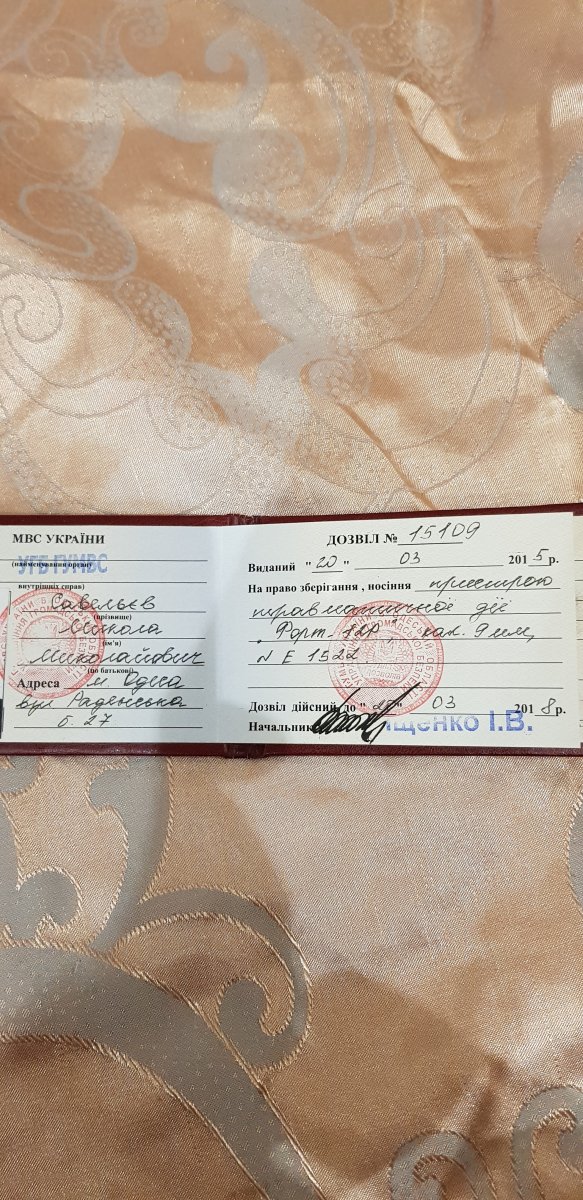 МВС УКРАЇНИ
УГБ ГУМВС
(найменування органу
внутрішніх справ)
Савельєв
(прізвище)
Микола
(ім'я)
Миколайович
(по батькові)
Адреса м. Одеса
вул
б. 27
ДОЗВІЛ № 15109
Виданий "20" 03 2015 р.
На право зберігання, носіння пристрою
травматичної дії
„Форт-12Р“ кал. 9 мм,
N Е 1522
Дозвіл дійсний до "20" 03 2018 р.
Начальник І.В.